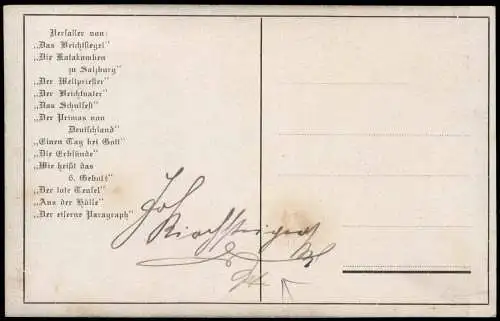 Verfasser von:
„Das Beichtsiegel"
„Die Katakomben
zu Salzburg"
„Der Weltpriester"
„Der Beichtvater"
„Das Schulfest"
„Der Primas von
Deutschland"
„Einen Tag bei Gott"
„Die Erbsünde"
„Wie heißt das
6. Gebot?"
„Der tote Teufel"
„Aus der Hölle"
„Der eiserne Paragraph"
Joh